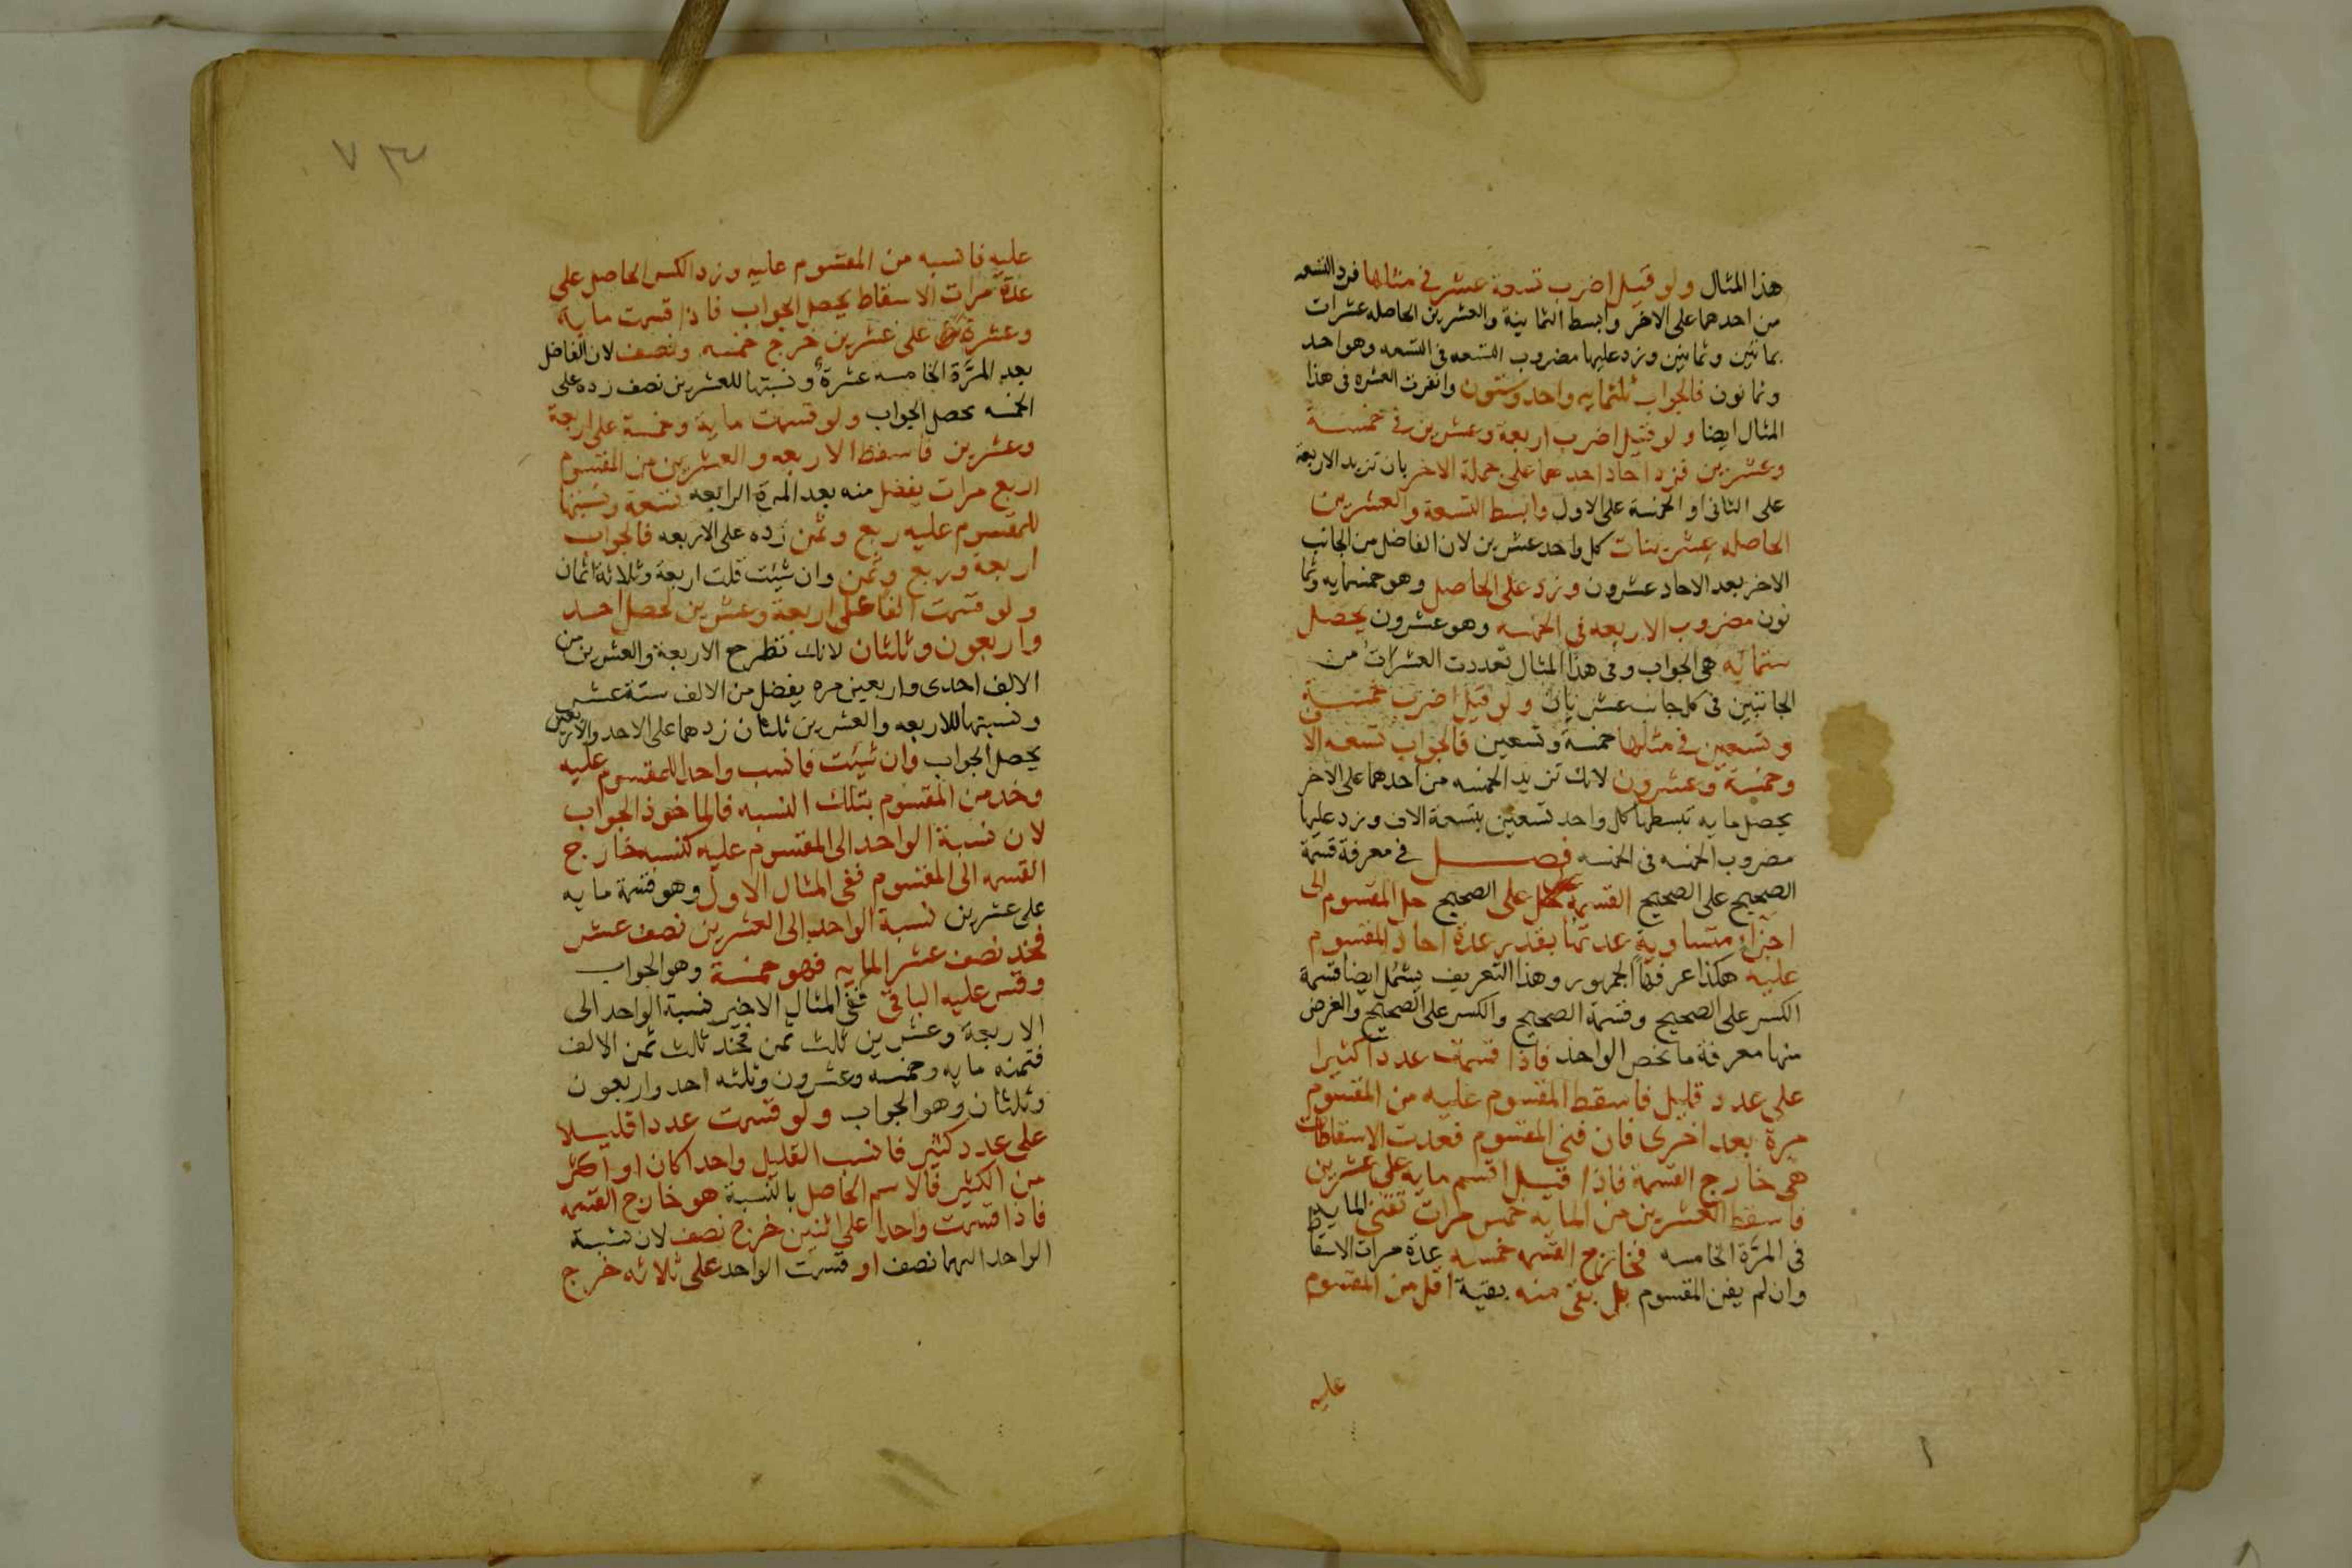 هذا المثال ولو قيل اضرب تسعة عشر في مثلها فزد التسعه
من احدهما على الاخر وابسط الثمانية والعشرين الحاصله عشرات
بمائتين وثمانين وزد عليها مضروب التسعه فى التسعه وهو احد
وثمانون فالجواب ثلثمايه واحد وستون وانفردت العشره فى هذا
المثال ايضا ولو قيل اضرب اربعة وعشرين في خمسة
وعشرين فزد احاد احدهما على جملة الاخر بان تزيد الاربعة
على الثانى او الخمسة على الاول وابسط التسعة والعشرين
الحاصله عشرينات كل واحد عشرين لان الفاضل من الجانب
الاخر بعد الاحاد عشرون وزد على الحاصل وهو خمسمايه وثما
نون مضروب الاربعه فى الخمسه وهو عشرون يحصل
ستمائه هى الجواب وفى هذا المثال تعددت العشرات من
الجانبين فى كل جانب عشرتان ولو قيل اضرب خمسة
وتسعين في مثلها خمسة وتسعين فالجواب تسعه الاف
وخمسة وعشرون لانك تزيد الخمسه من احدهما على الاخر
يحصل مايه تبسطها كل واحد تسعين بتسعة الاف وزد عليها
مضروب الخمسه فى الخمسه فصل في معرفة قسمة
الصحيح على الصحيح القسمة على الصحيح حل المقسوم الى
اجزاء متساوية عدتها بقدر عدة احاد المقسوم
عليه هكذا عرفها الجمهور وهذا التعريف يشمل ايضا قسمة
الكسر على الصحيح وقسمة الصحيح والكسر على الصحيح والغرض
منها معرفة ما يخص الواحد فاذا قسمت عددا كثيرا
على عدد قليل فاسقط المقسوم عليه من المقسوم
مرة بعد اخرى فان فنى المقسوم فعدت الاسقاطات
هى خارج القسمة فاذا قيل اقسم مايه على عشرين
فاسقط العشرين من المايه خمس مرات تفنى المايه
فى المرة الخامسه فخارج القسمه خمسه عدة مرات الاسقاط
وان لم يفن المقسوم بل بقى منه بقية اقل من المقسوم
عليه
٧٣
عليه فانسبه من المقسوم عليه وزد الكسر الحاصل على
عدة مرات الاسقاط يحصل الجواب فاذا قسمت ماية
وعشرة على عشرين خرج خمسه ونصف لان الفاضل
بعد المرة الخامسه عشرة ونسبتها للعشرين نصف زده على
الخمسه يحصل الجواب ولو قسمت ماية وخمسة على اربعة
وعشرين فاسقط الاربعه والعشرين من المقسوم
اربع مرات يفضل منه بعد المرة الرابعه تسعة ونسبتها
للمقسوم عليه ربع وثمن زده على الاربعه فالجواب
اربعة وربع وثمن وان شئت قلت اربعة وثلاثة اثمان
ولو قسمت الفا على اربعة وعشرين لحصل احد
واربعون وثلثان لانك تطرح الاربعة والعشرين من
الالف احدى واربعين مره يفضل من الالف ستة عشر
ونسبتها للاربعه والعشرين ثلثان زدهما على الاحد والاربعين
يحصل الجواب وان شئت فانسب واحدا للمقسوم عليه
وخد من المقسوم بتلك النسبه فالماخوذ الجواب
لان نسبة الواحد الى المقسوم عليه كنسبه خارج
القسمه الى المقسوم ففى المثال الاول وهو قسمة مايه
على عشرين نسبة الواحد الى العشرين نصف عشر
فخد نصف عشر المايه فهو خمسة وهو الجواب
وقس عليه الباقى ففى المثال الاخير نسبة الواحد الى
الاربعة وعشرين ثلث ثمن فخد ثلث ثمن الالف
فثمنه مايه وخمسه وعشرون وثلثه احد واربعون
وثلثان وهو الجواب ولو قسمت عددا قليلا
على عدد كثير فانسب القليل واحدا كان او اكثر
من الكثير فالاسم الحاصل بالنسبة هو خارج القسمه
فاذا قسمت واحدا على اثنين خرج نصف لان نسبة
الواحد اليهما نصف او قسمت الواحد على ثلاثه خرج